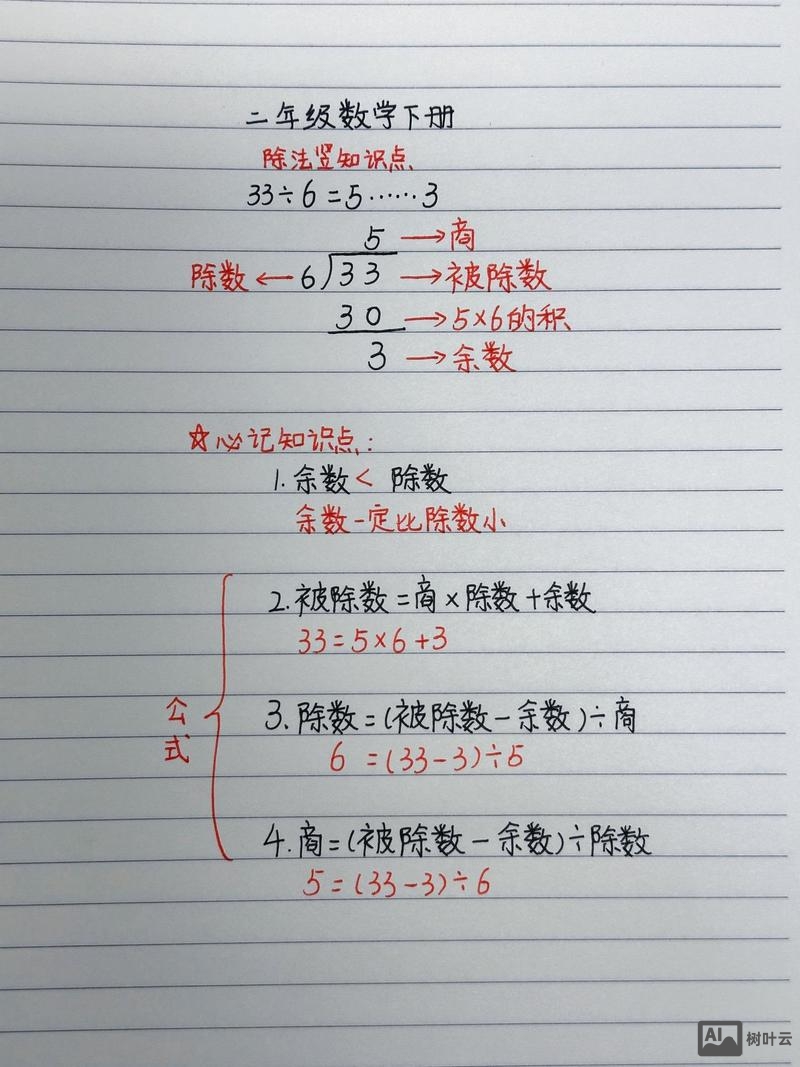 二年级数学下册
除法竖知识点
33÷6=5……3
5→商
除数←6)33→被除数
30→5×6的积
3→余数
☆必记知识点:
1.余数< 除数
余数一定比除数小
公式
2.被除数=商×除数+余数
33=5×6+3
3.除数=(被除数-余数)÷商
6=(33-3)÷5
4.商=(被除数-余数)÷除数
5=(33-3)÷6
AI 树叶云